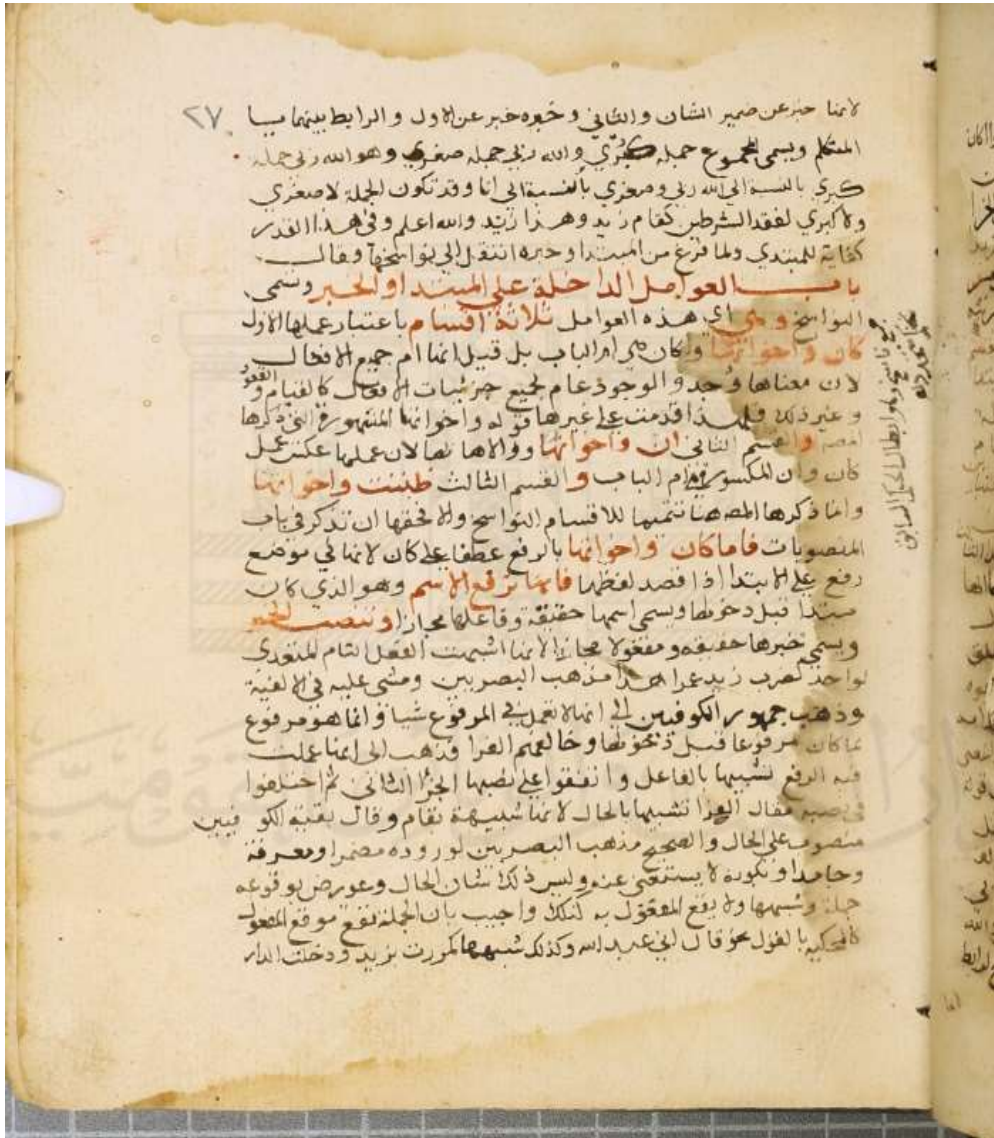 ٢٧
لانها خبر عن ضمير الشان والثاني وخبره خبر عن الاول والرابط بينهما يا
المتكلم ويسمى المجموع جملة كبري والله ربي جملة صغري وهو الله ربي جملة
كبري بالنسبة الي الله ربي وصغري بالنسبة الي انا وقد تكون الجملة لا صغري
ولا كبري لفقد الشرطين كقام زيد وهذا زيد والله اعلم وفي هذا القدر
كفاية للمبتدي ولما فرغ من المبتدا وخبره انتقل الي نواسخها وقال
باب العوامل الداخلة علي المبتدا والخبر وتسمى
النواسخ وهي اي هذه العوامل ثلاثة اقسام باعتبار عملها الاول
كان واخواتها وكان هي ام الباب بل قيل انها ام جميع الافعال
لان معناها وجد والوجود عام لجميع جزئيات الافعال كالقيام والقعود
وغير ذلك فلهذا قدمت علي غيرها قوله واخواتها المشهورة التي ذكرها
والقسم الثاني ان واخواتها ووالاها بها لان عملها عكس عمل
كان وان المكسورة ام الباب والقسم الثالث ظننت واخواتها
وانما ذكرها المص هنا تتميما للاقسام النواسخ والا فحقها ان تذكر في باب
المنصوبات فاما كان واخواتها بالرفع عطفا علي كان لانها في موضع
رفع علي الابتدا اذا قصد لفظها فانها ترفع الاسم وهو الذي كان
مبتدا قبل دخولها ويسمى اسمها حقيقة وفاعلها مجازا وتنصب الخبر
ويسمى خبرها حقيقة ومفعولا مجازا لانها اشبهت الفعل التام المتعدي
لواحد كضرب زيد عمرا هذا مذهب البصريين ومشى عليه في الالفية
وذهب جمهور الكوفيين الي انها لا تعمل في المرفوع شيا وانما هو مرفوع
بما كان مرفوعا قبل دخولها وخالفهم الفرا وذهب الى انها عملت
فيه الرفع تشبيها بالفاعل واتفقوا علي نصبها الجزا الثاني ثم اختلفوا
في نصبه فقال الفرا تشبيها بالحال لانها شبيهة بقام وقال بقية الكوفيين
منصوب علي الحال والصحيح مذهب البصريين لوروده مضمرا ومعرفة
وجامدا وبكونه لا يستغنى عنه وليس ذلك شان الحال وعورض بوقوعه
جملة وشبهها ولا يقع المفعول به كذلك واجيب بان الجملة تقع موقع المفعول
كالمحكية بالقول نحو قال اني عبد الله وكذلك شبهها كمررت بزيد ودخلت الدار